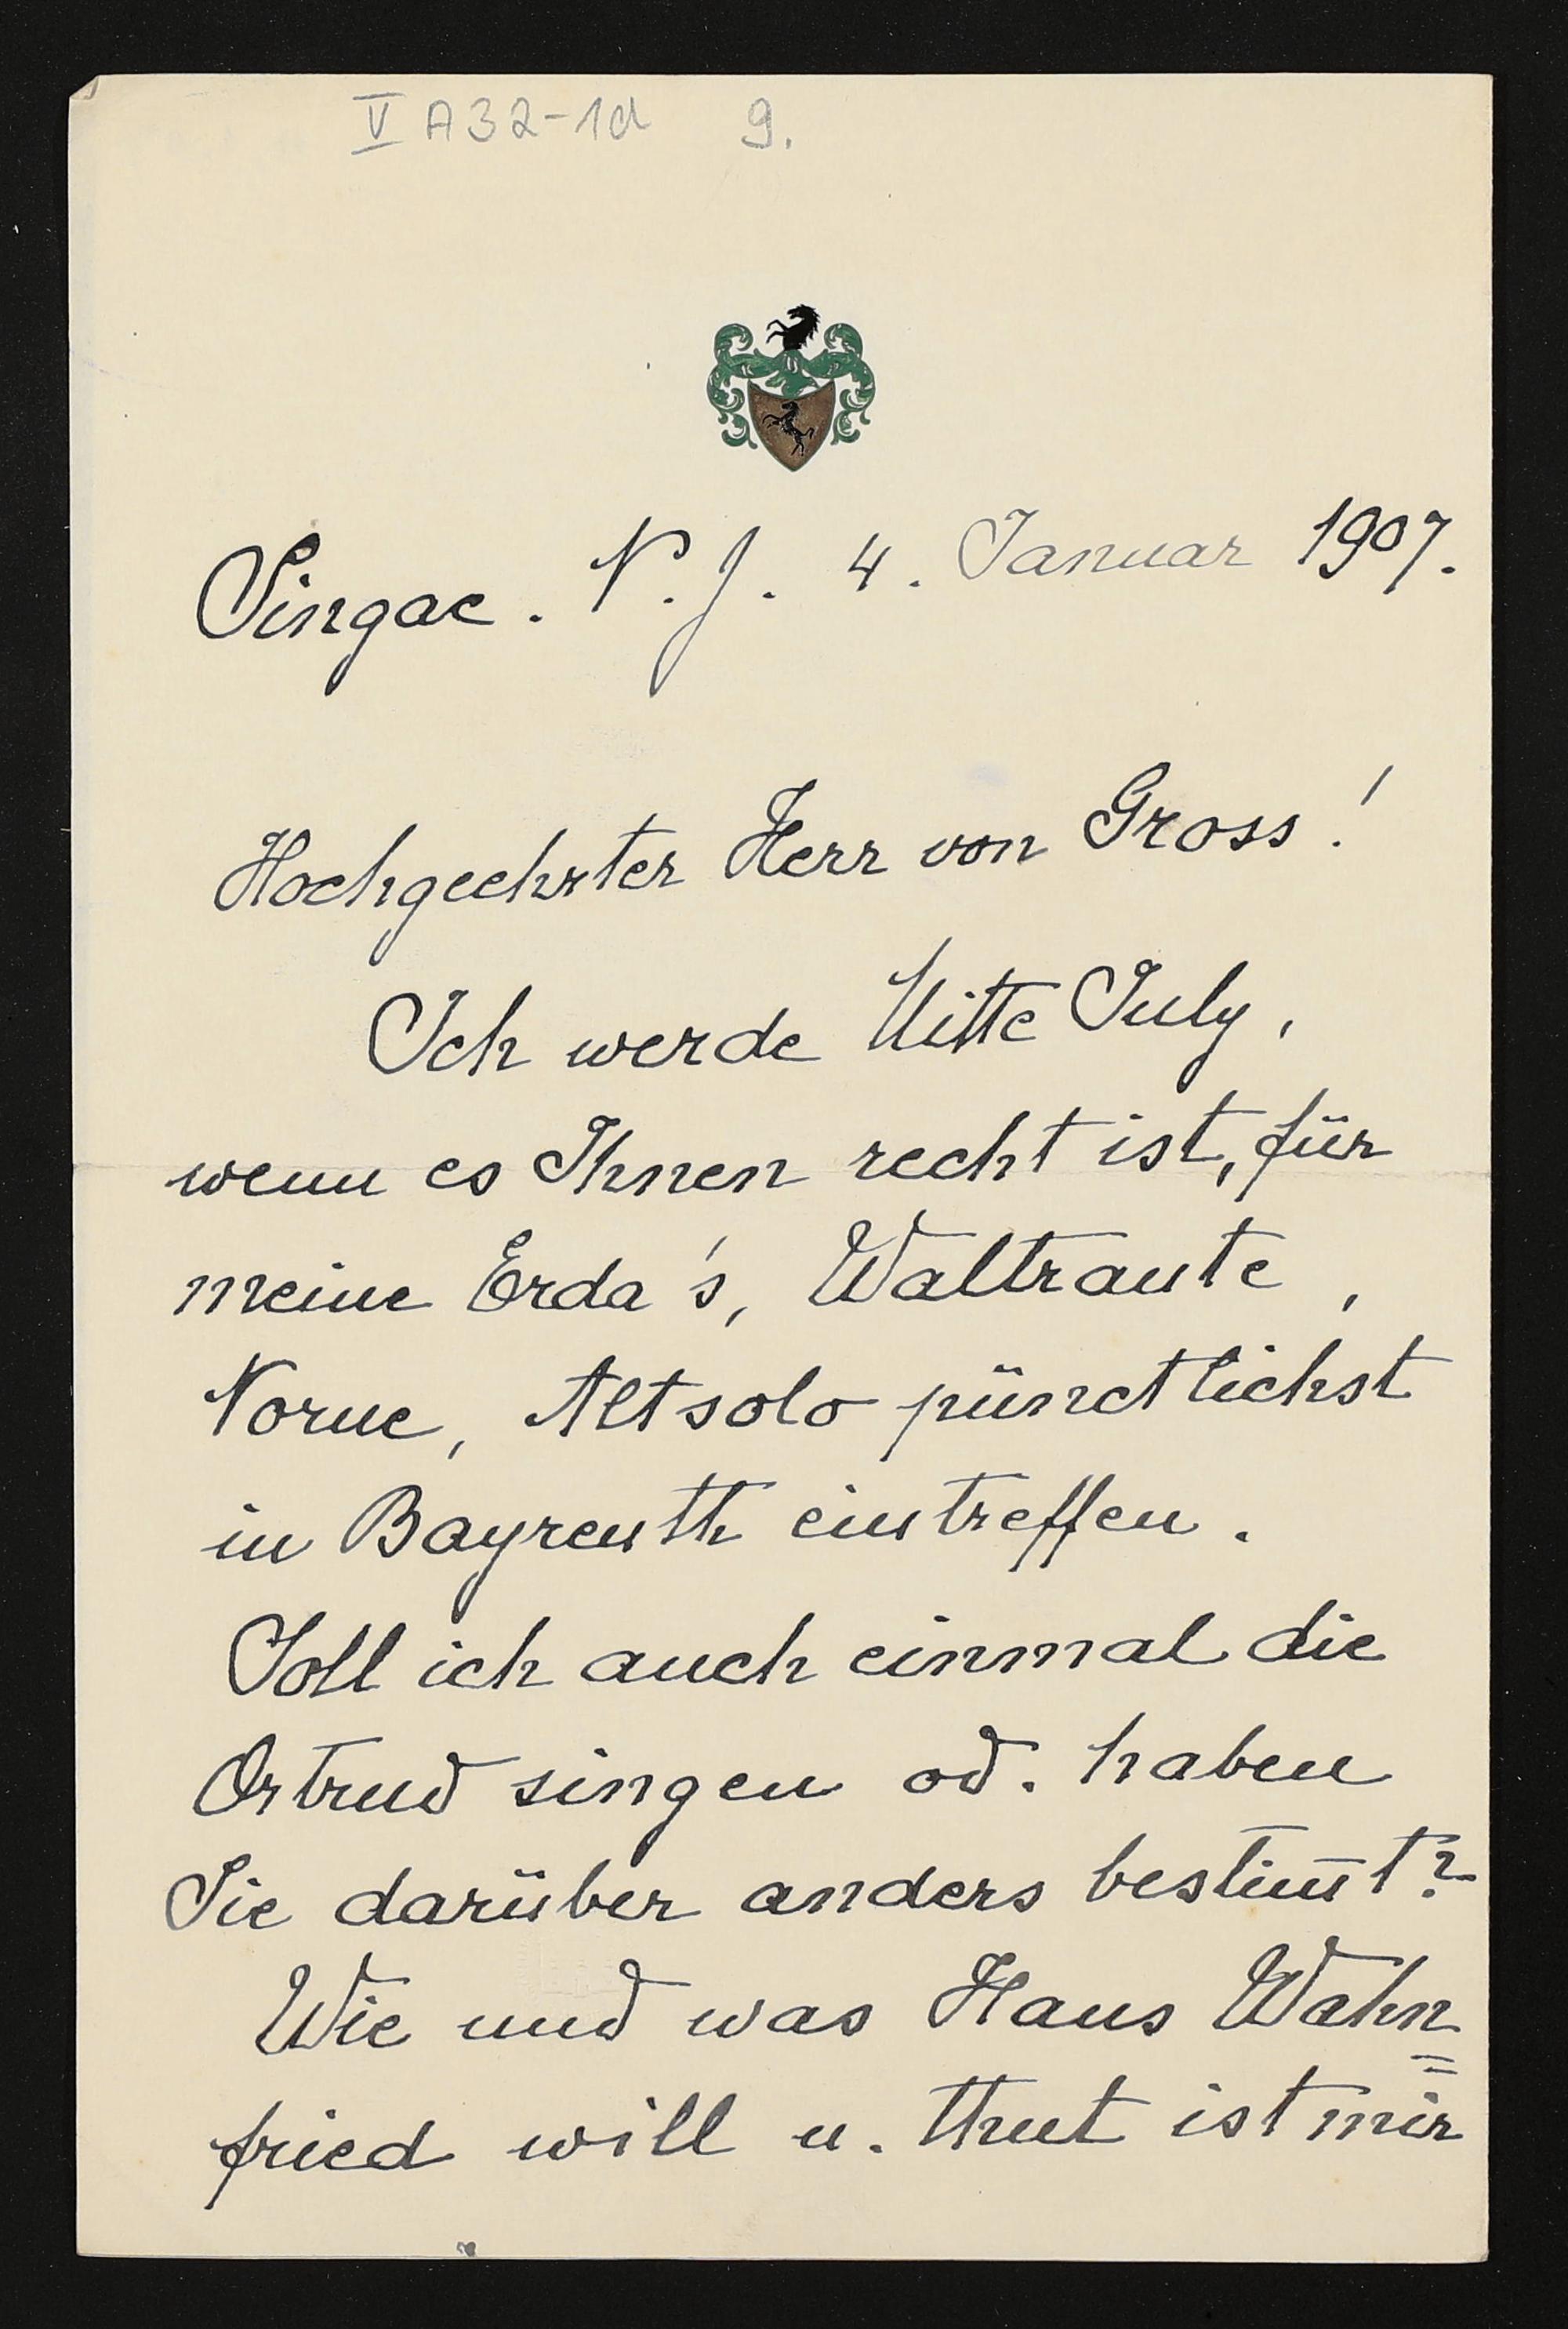 V A32-1d 9.
Singac. N.J. 4. Januar 1907.
Hochgeehrter Herr von Gross!
Ich werde Mitte July,
wenn es Ihnen recht ist, für
meine Erda's, Waltraute,
Norne, Altsolo pünctlichst
in Bayreuth eintreffen.
Soll ich auch einmal die
Ortrud singen od. haben
Sie darüber anders bestim̅t?
Wie und was Haus Wahn=
fried will u. thut ist mir